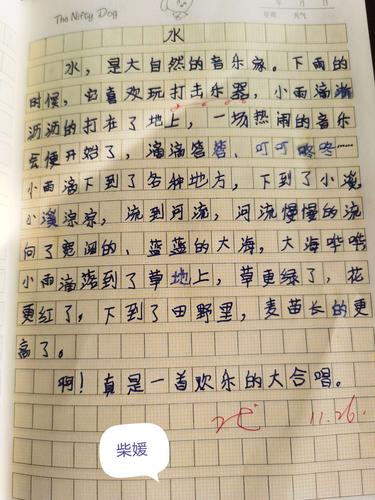 The Nifty Dog
年 月 日
星期 天气
水
水，是大自然的音乐家。下雨的
时候，它喜欢玩打击乐器，小雨滴淅
沥沥的打在了地上，一场热闹的音乐
会便开始了，滴滴答答、叮叮咚咚……
小雨滴下到了各种地方，下到了小溪，
小溪淙淙，流到河流，河流慢慢的流
向了宽阔的、蓝蓝的大海，大海哗哗
小雨滴落到了草地上，草更绿了，花
更红了。下到了田野里，麦苗长的更
高了。
啊！真是一首欢乐的大合唱。
11.26.
柴媛